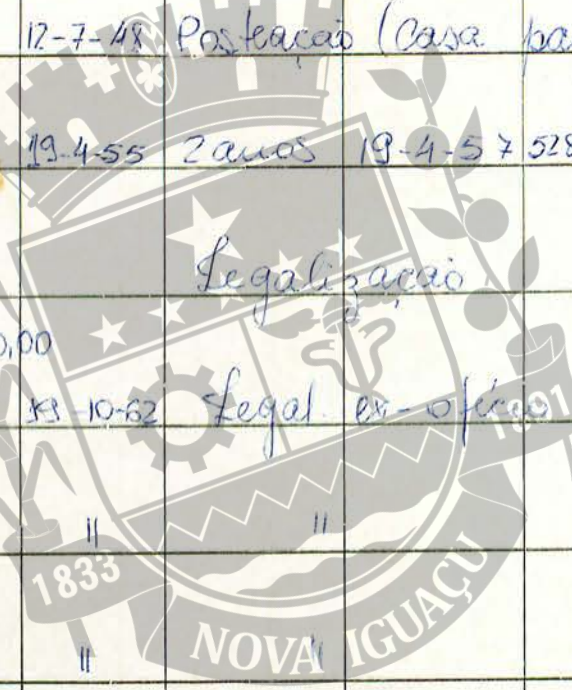 12-7-48 Posteação (Casa pa
19-4-55 2 anos 19-4-57 528
Legalização
0,00
19-10-62 Legal. ex-ofício
1891
" "
1833
NOVA IGUAÇU
" "